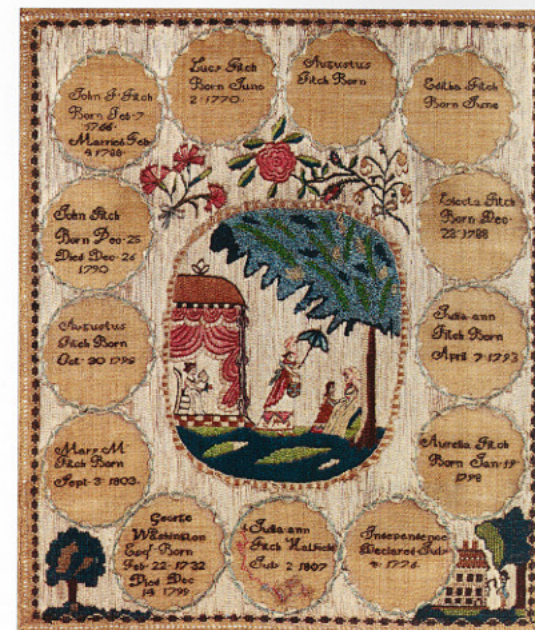 John F. Fitch
Born Feb. 7
1766.
Married Feb
4 1788
Lucy Fitch
Born June
2. 1770.
Augustus
Fitch Born
Editha Fitch
Born June
John Fitch
Born Dec. 25
Died Dec. 26
1790
Electa Fitch
Born Dec.
22. 1788
Augustus
Fitch Born
Oct. 30 1795
Julia ann
Fitch Born
April 7. 1793
Mary M.
Fitch Born
Sept. 3. 1803.
Aurelia Fitch
Born Jan. 19
1798
George
Washington
Esqr. Born
Feb. 22. 1732
Died Dec
14 1799
Julia ann
Fitch Hatfield
July 2 1807
Independence
Declared July
4. 1776.